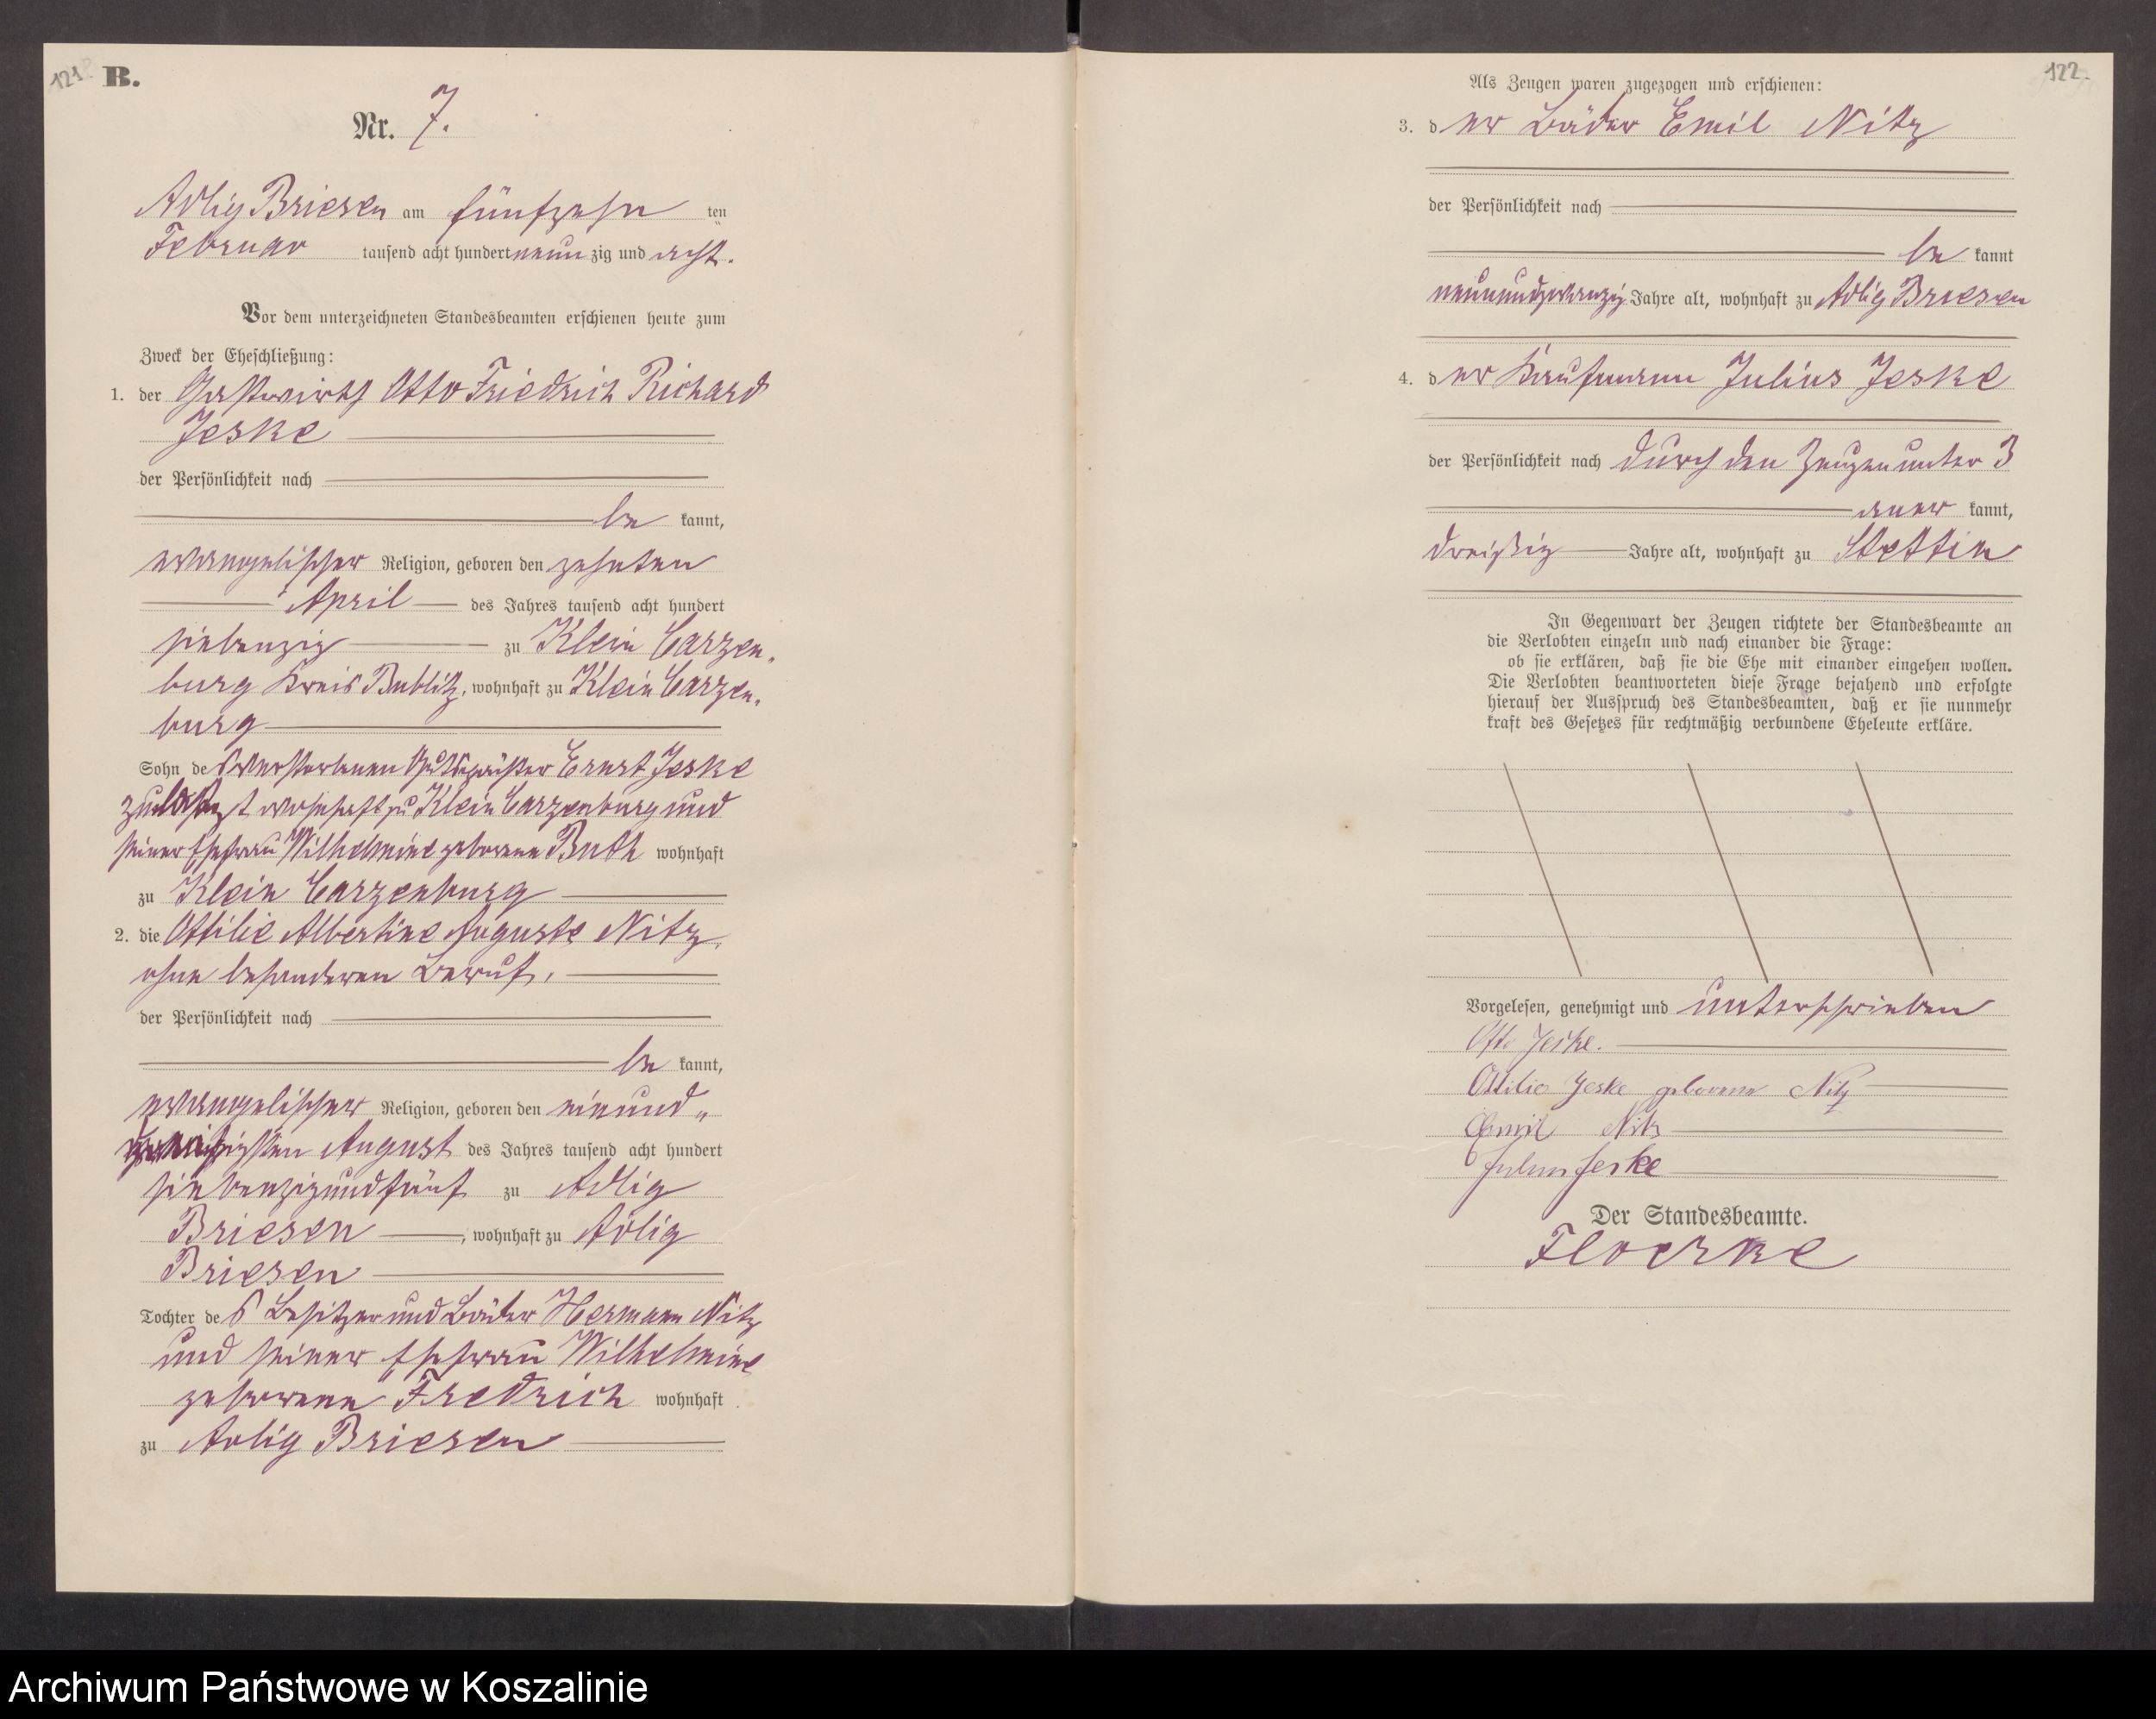 121
B.
Nr. 7.
Adlig Briesen am fünfzehn ten
Februar tausend acht hundert neun zig und acht.
Vor dem unterzeichneten Standesbeamten erschienen heute zum
Zweck der Eheschließung:
1. der Gastwirth Otto Friedrich Richard
Jeske
der Persönlichkeit nach
be kannt,
evangelischer Religion, geboren den zehnten
April des Jahres tausend acht hundert
siebenzig zu Klein Carzen„
burg Kreis Bublitz, wohnhaft zu Klein Carzen„
burg
Sohn des verstorbenen Ernst Jeske
zuletzt wohnhaft zu Klein Carzenburg und
seiner Ehefrau Wilhelmine geborene Buth wohnhaft
zu Klein Carzenburg
2. die Ottilie Albertine Auguste Nitz,
ohne besonderen Beruf,
der Persönlichkeit nach
be kannt,
evangelischer Religion, geboren den einund„
dreißigsten August des Jahres tausend acht hundert
siebenzigundfünf zu Adlig
Briesen, wohnhaft zu Adlig
Briesen
Tochter des Besitzer und Bäcker Hermann Nitz
und seiner Ehefrau Wilhelmine
geborene Fredrich wohnhaft
zu Adlig Briesen
122.
Als Zeugen waren zugezogen und erschienen:
3. der Bäcker Emil Nitz
der Persönlichkeit nach
be kannt
neunundzwanzig Jahre alt, wohnhaft zu Adlig Briesen
4. der Kaufmann Julius Jeske
der Persönlichkeit nach durch den Zeugen unter 3
aner kannt,
dreißig Jahre alt, wohnhaft zu Stettin
In Gegenwart der Zeugen richtete der Standesbeamte an
die Verlobten einzeln und nach einander die Frage:
ob sie erklären, daß sie die Ehe mit einander eingehen wollen.
Die Verlobten beantworteten diese Frage bejahend und erfolgte
hierauf der Ausspruch des Standesbeamten, daß er sie nunmehr
kraft des Gesetzes für rechtmäßig verbundene Eheleute erkläre.
Vorgelesen, genehmigt und unterschrieben
Otto Jeske.
Ottilie Jeske geborene Nitz
Emil Nitz
Julius Jeske
Der Standesbeamte.
Floerke
Archiwum Państwowe w Koszalinie